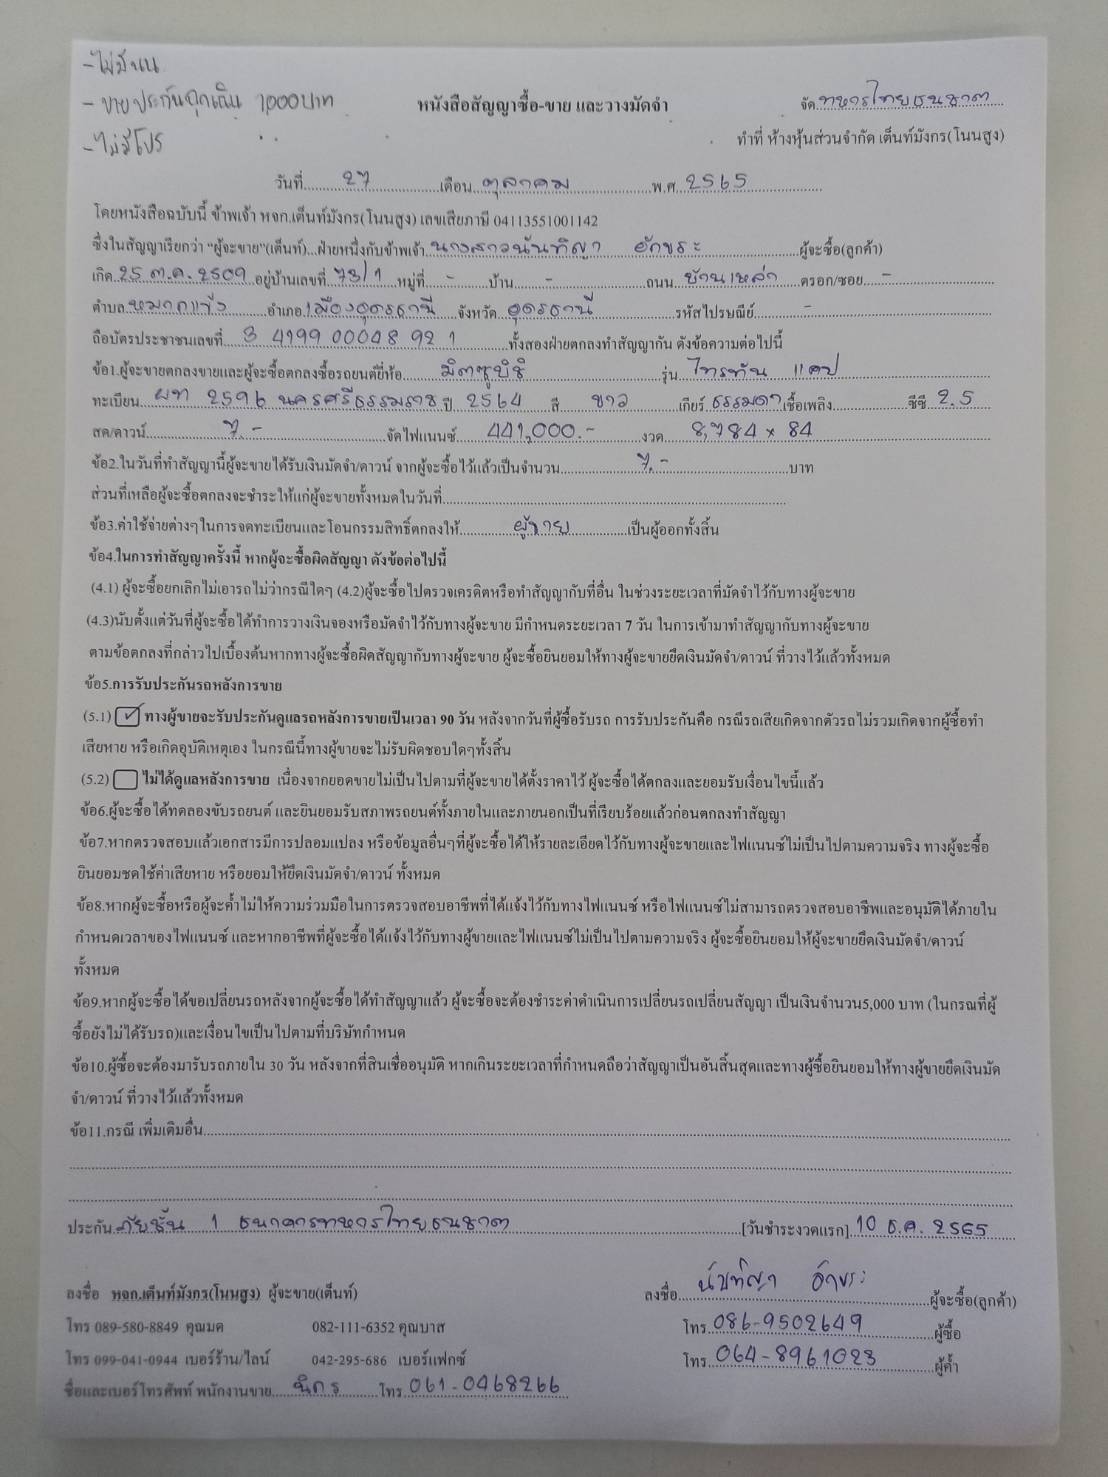 -ไม่มีนน
- ขายประกันฉุกเฉิน 1,000 บาท
-ไม่มีโปร
หนังสือสัญญาซื้อ-ขาย และวางมัดจำ
จัด ทหารไทยธนชาต
ทำที่ ห้างหุ้นส่วนจำกัด เต็นท์มังกร(โนนสูง)
วันที่ 27 เดือน ตุลาคม พ.ศ 2565
โดยหนังสือฉบับนี้ ข้าพเจ้า หจก.เต็นท์มังกร(โนนสูง) เลขเสียภาษี 04113551001142
ซึ่งในสัญญาเรียกว่า "ผู้จะขาย"(เต็นท์)...ฝ่ายหนึ่งกับข้าพเจ้า นางสาวนันทิญา อักขระ ผู้จะซื้อ(ลูกค้า)
เกิด 25 ต.ค. 2509 อยู่บ้านเลขที่ 73/1 หมู่ที่ - บ้าน - ถนน บ้านเหล่า ตรอก/ซอย -
ตำบล หมากแข้ง อำเภอ เมืองอุดรธานี จังหวัด อุดรธานี รหัสไปรษณีย์ -
ถือบัตรประชาชนเลขที่ 3 4199 00048 92 1 ทั้งสองฝ่ายตกลงทำสัญญากัน ดังข้อความต่อไปนี้
ข้อ1.ผู้จะขายตกลงขายและผู้จะซื้อตกลงซื้อรถยนต์ยี่ห้อ มิตซูบิชิ รุ่น ไทรทัน แคป
ทะเบียน ผท 2596 นครศรีธรรมราช ปี 2564 สี ขาว เกียร์ ธรรมดา เชื้อเพลิง ซีซี 2.5
สด/ดาวน์ 7.- จัดไฟแนนซ์ 441,000.- งวด 8,784 x 84
ข้อ2.ในวันที่ทำสัญญานี้ผู้จะขายได้รับเงินมัดจำ/ดาวน์ จากผู้จะซื้อไว้แล้วเป็นจำนวน 7.- บาท
ส่วนที่เหลือผู้จะซื้อตกลงจะชำระให้แก่ผู้จะขายทั้งหมดในวันที่
ข้อ3.ค่าใช้จ่ายต่างๆในการจดทะเบียนและโอนกรรมสิทธิ์ตกลงให้ ผู้ขาย เป็นผู้ออกทั้งสิ้น
ข้อ4.ในการทำสัญญาครั้งนี้ หากผู้จะซื้อผิดสัญญา ดังข้อต่อไปนี้
(4.1) ผู้จะซื้อยกเลิกไม่เอารถไม่ว่ากรณีใดๆ (4.2)ผู้จะซื้อไปตรวจเครดิตหรือทำสัญญากับที่อื่น ในช่วงระยะเวลาที่มัดจำไว้กับทางผู้จะขาย
(4.3)นับตั้งแต่วันที่ผู้จะซื้อได้ทำการวางเงินจองหรือมัดจำไว้กับทางผู้จะขาย มีกำหนดระยะเวลา 7 วัน ในการเข้ามาทำสัญญากับทางผู้จะขาย
ตามข้อตกลงที่กล่าวไปเบื้องต้นหากทางผู้จะซื้อผิดสัญญากับทางผู้จะขาย ผู้จะซื้อยินยอมให้ทางผู้จะขายยึดเงินมัดจำ/ดาวน์ ที่วางไว้แล้วทั้งหมด
ข้อ5.การรับประกันรถหลังการขาย
(5.1) ✓ ทางผู้ขายจะรับประกันดูแลรถหลังการขายเป็นเวลา 90 วัน หลังจากวันที่ผู้ซื้อรับรถ การรับประกันคือ กรณีรถเสียเกิดจากตัวรถไม่รวมเกิดจากผู้ซื้อทำ
เสียหาย หรือเกิดอุบัติเหตุเอง ในกรณีนี้ทางผู้ขายจะไม่รับผิดชอบใดๆทั้งสิ้น
(5.2) ไม่ได้ดูแลหลังการขาย เนื่องจากยอดขายไม่เป็นไปตามที่ผู้จะขายได้ตั้งราคาไว้ ผู้จะซื้อได้ตกลงและยอมรับเงื่อนไขนี้แล้ว
ข้อ6.ผู้จะซื้อได้ทดลองขับรถยนต์ และยินยอมรับสภาพรถยนต์ทั้งภายในและภายนอกเป็นที่เรียบร้อยแล้วก่อนตกลงทำสัญญา
ข้อ7.หากตรวจสอบแล้วเอกสารมีการปลอมแปลง หรือข้อมูลอื่นๆที่ผู้จะซื้อได้ให้รายละเอียดไว้กับทางผู้จะขายและไฟแนนซ์ไม่เป็นไปตามความจริง ทางผู้จะซื้อ
ยินยอมชดใช้ค่าเสียหาย หรือยอมให้ยึดเงินมัดจำ/ดาวน์ ทั้งหมด
ข้อ8.หากผู้จะซื้อหรือผู้จะค้ำไม่ให้ความร่วมมือในการตรวจสอบอาชีพที่ได้แจ้งไว้กับทางไฟแนนซ์ หรือไฟแนนซ์ไม่สามารถตรวจสอบอาชีพและอนุมัติได้ภายใน
กำหนดเวลาของไฟแนนซ์ และหากอาชีพที่ผู้จะซื้อได้แจ้งไว้กับทางผู้ขายและไฟแนนซ์ไม่เป็นไปตามความจริง ผู้จะซื้อยินยอมให้ผู้จะขายยึดเงินมัดจำ/ดาวน์
ทั้งหมด
ข้อ9.หากผู้จะซื้อได้ขอเปลี่ยนรถหลังจากผู้จะซื้อได้ทำสัญญาแล้ว ผู้จะซื้อจะต้องชำระค่าดำเนินการเปลี่ยนรถเปลี่ยนสัญญา เป็นเงินจำนวน5,000 บาท (ในกรณที่ผู้
ซื้อยังไม่ได้รับรถ)และเงื่อนไขเป็นไปตามที่บริษัทกำหนด
ข้อ10.ผู้ซื้อจะต้องมารับรถภายใน 30 วัน หลังจากที่สินเชื่ออนุมัติ หากเกินระยะเวลาที่กำหนดถือว่าสัญญาเป็นอันสิ้นสุดและทางผู้ซื้อยินยอมให้ทางผู้ขายยึดเงินมัด
จำ/ดาวน์ ที่วางไว้แล้วทั้งหมด
ข้อ11.กรณี เพิ่มเติมอื่น
ประกัน ภัยชั้น 1 ธนาคารทหารไทยธนชาต [วันชำระงวดแรก] 10 ธ.ค. 2565
ลงชื่อ หจก.เต็นท์มังกร(โนนสูง) ผู้จะขาย(เต็นท์)
ลงชื่อ นันทิญา อักขระ ผู้จะซื้อ(ลูกค้า)
โทร 089-580-8849 คุณมด 082-111-6352 คุณบาส
โทร 086-9502649 ผู้ซื้อ
โทร 099-041-0944 เบอร์ร้าน/ไลน์ 042-295-686 เบอร์แฟกซ์
โทร 064-8961023 ผู้ค้ำ
ชื่อและเบอร์โทรศัพท์ พนักงานขาย นิกร โทร 061-0468266